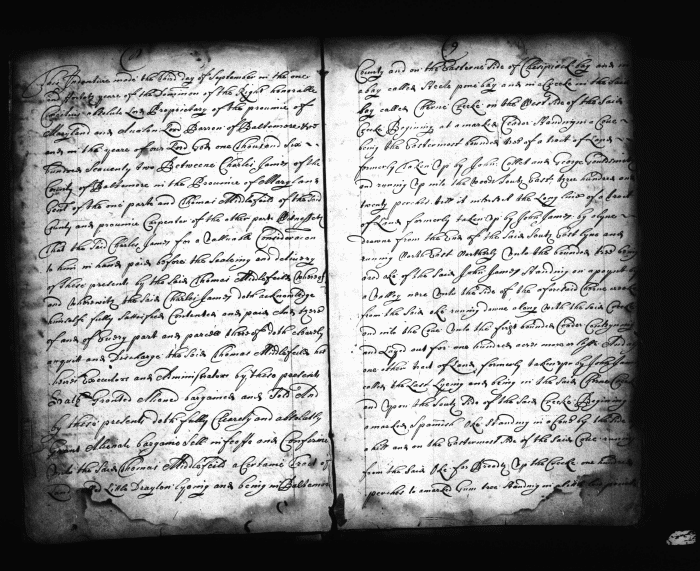 This Indenture made the second day of September in the one
and fortieth yeare of the Dominion of the Right honorable
Cecelius absolute Lord Proprietary of the province of
Maryland and Avalon Lord Barron of Baltemore &c
and in the yeare of our Lord God one Thousand Six
hundred Seaventy two Betweene Charles James of the
County of Baltemore in the Province of Maryland
Gent of the one part and Thomas Middlefeild of the said
County and province Carpenter of the other part Witnesseth
that the said Charles James for a Valluable Consideration
to him in hand paid before the Sealeing and delivery
of these presents by the said Thomas Middlefeild whereof
and wherewith the said Charles James doth acknowledge
himselfe fully Sattisfied Contented and paid and
of and of Every part and parcell thereof doth clearly
acquitt and Discharge the said Thomas Middlefeild his
heires Executors and Administrators by these presents
hath Granted Aliened bargained and Sold And
by these presents doth fully Clearely and absolutly
Grant Alienate bargaine Sell infeoffe and Confirme
Unto the said Thomas Middlefeild a Certaine Tract of
Land Little Drayton lyeing and being in Baltemore
9
County and on the Easterne Side of Chesapeack bay and in
a bay called Steele pone bay and in a Creeke on the
bay called Churne Creeke on the West Side of the said
Creeke Begining at a marked Ceader Standing in a Cove
being the Eastermost bounded tree of a tract of Land
formerly Taken Up by John Collet and George Gouldsmith
and runing Up into the woods South East three hundred and
twenty perches till it intersect the Long line of a tract
of Land formerly taken Up by John James by a lyne
drawne from the End of the said South East lyne and
runing North East Northerly Unto the bounded tree being
a red oke of the said John James Standing on a point by
a Valley neere Unto the side of the aforesaid Churne creeke
from the said oke runing downe along with the said Creeke
and into the Cove Unto the first bounded Ceader Containing
and Layed out for one hundred acres more or lesse And
one other tract of Land formerly taken up by John
called the Last Lyeing and being in the said Churne Creeke
and Upon the South Side of the said Creeke Begining
a marked Spanish oke Standing in a Cove by the side
a hill and on the Eastermost side of the said Cove runing
from the said oke for Breadth Up the Creeke one hundred
perches to a marked Gum tree Standing in a little